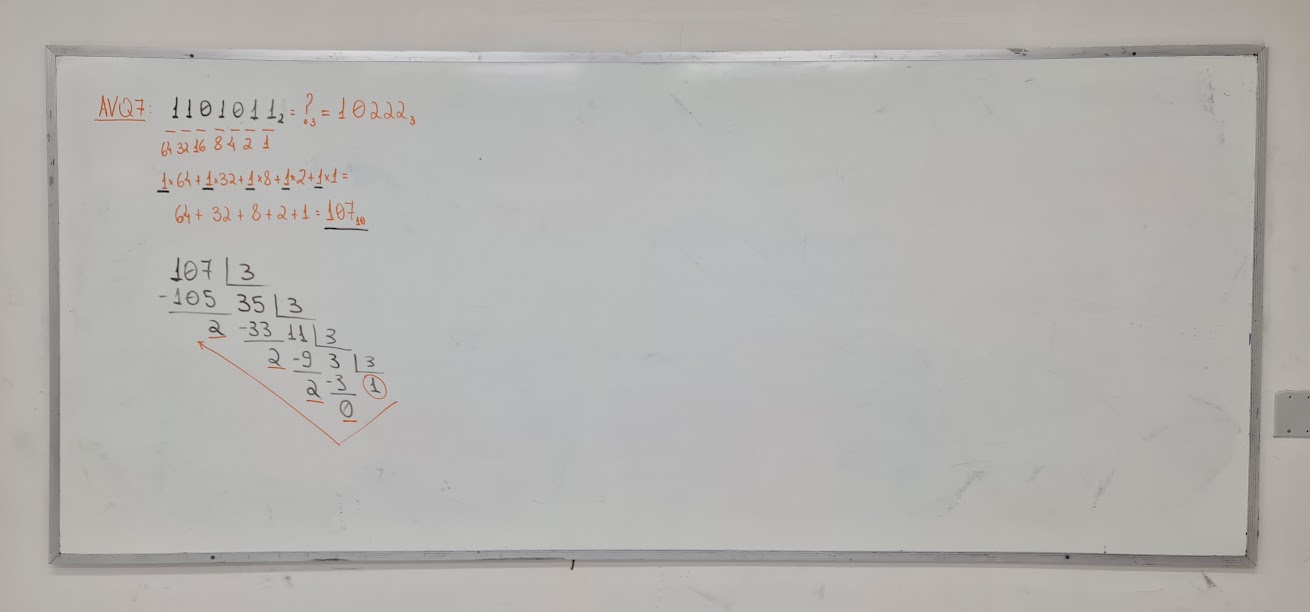 AVQ7: 1101011₂ = ?₃ = 10222₃
64 32 16 8 4 2 1
1×64+1×32+1×8+1×2+1×1=
64+32+8+2+1=107₁₀
107 3
-105 35 3
2 -33 11 3
2 -9 3 3
2 -3 1
0